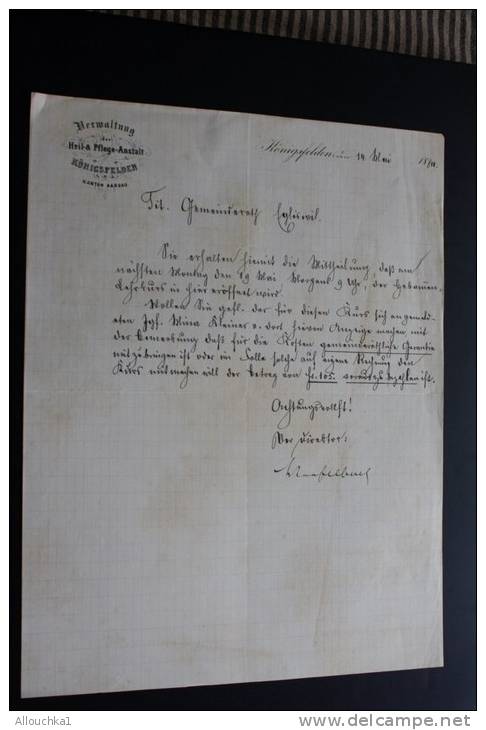 Verwaltung
der
Heil-& Pflege-Anstalt
KÖNIGSFELDEN
KANTON AARGAU
Königsfelden, den 14 Mai 18
Tit. Gemeinderath Egliswil.
Sie erhalten hiemit die Mittheilung, daß am
nächsten Montag den 19 Mai Morgens 9 Uhr, der Hebammen
Lehrkurs in hier eröffnet wird.
Wollen Sie gefl. der für diesen Kurs sich angemeld-
eten Jgf. Mina Kleiner v. dort hievon Anzeige machen, mit
der Bemerkung daß für die Kosten gemeinderäthliche Garantie
ist oder im Falle solche auf eigene Rechnung den
Kurs mitmachen will der Betrag von fr. 105. vorauszubezahlen ist.
Achtungsvollst!
Der Direktor:
Allouchka1
www.delcampe.net